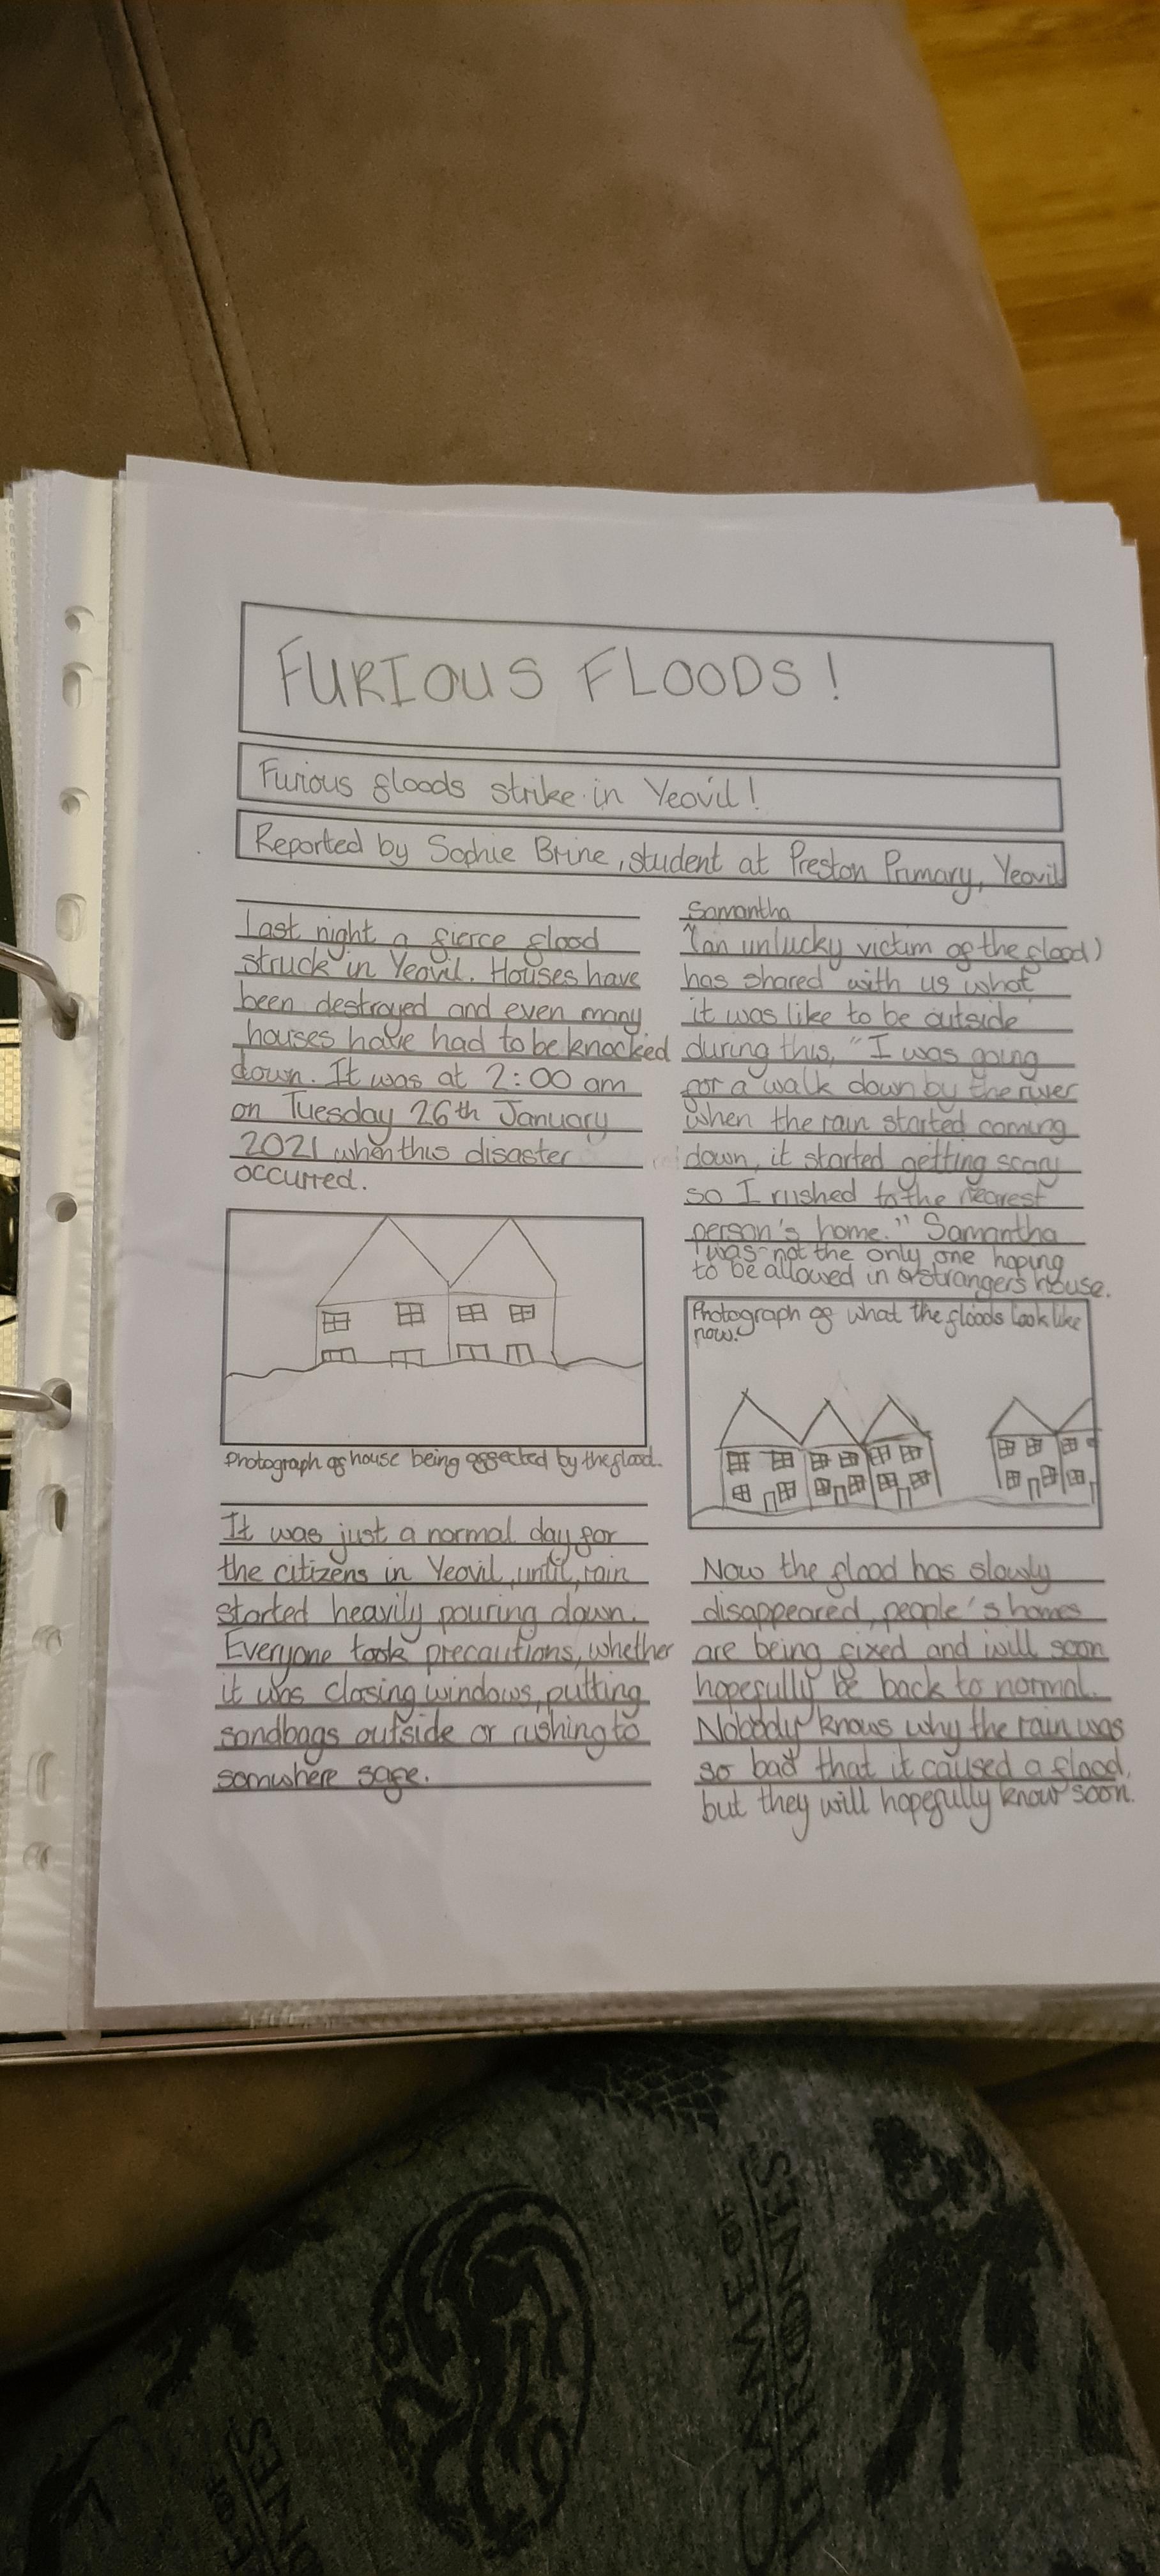 FURIOUS FLOODS!
Furious floods strike in Yeovil!
Reported by Sophie Brine, student at Preston Primary, Yeovil
Last night a fierce flood
struck in Yeovil. Houses have
been destroyed and even many
houses have had to be knocked
down. It was at 2:00 am
on Tuesday 26th January
2021 when this disaster
occurred.
Photograph of house being affected by the flood.
It was just a normal day for
the citizens in Yeovil, until, rain
started heavily pouring down.
Everyone took precautions, whether
it was closing windows, putting
sandbags outside or rushing to
somwhere safe.
Samantha
(an unlucky victim of the flood)
has shared with us what
it was like to be outside
during this, "I was going
for a walk down by the river
when the rain started coming
down, it started getting scary
so I rushed to the nearest
person's home." Samantha
was not the only one hoping
to be allowed in a strangers house.
Photograph of what the floods look like
now.
Now the flood has slowly
disappeared, people's homes
are being fixed and will soon
hopefully be back to normal.
Nobody knows why the rain was
so bad that it caused a flood,
but they will hopefully know soon.
GAME OF
THRONES